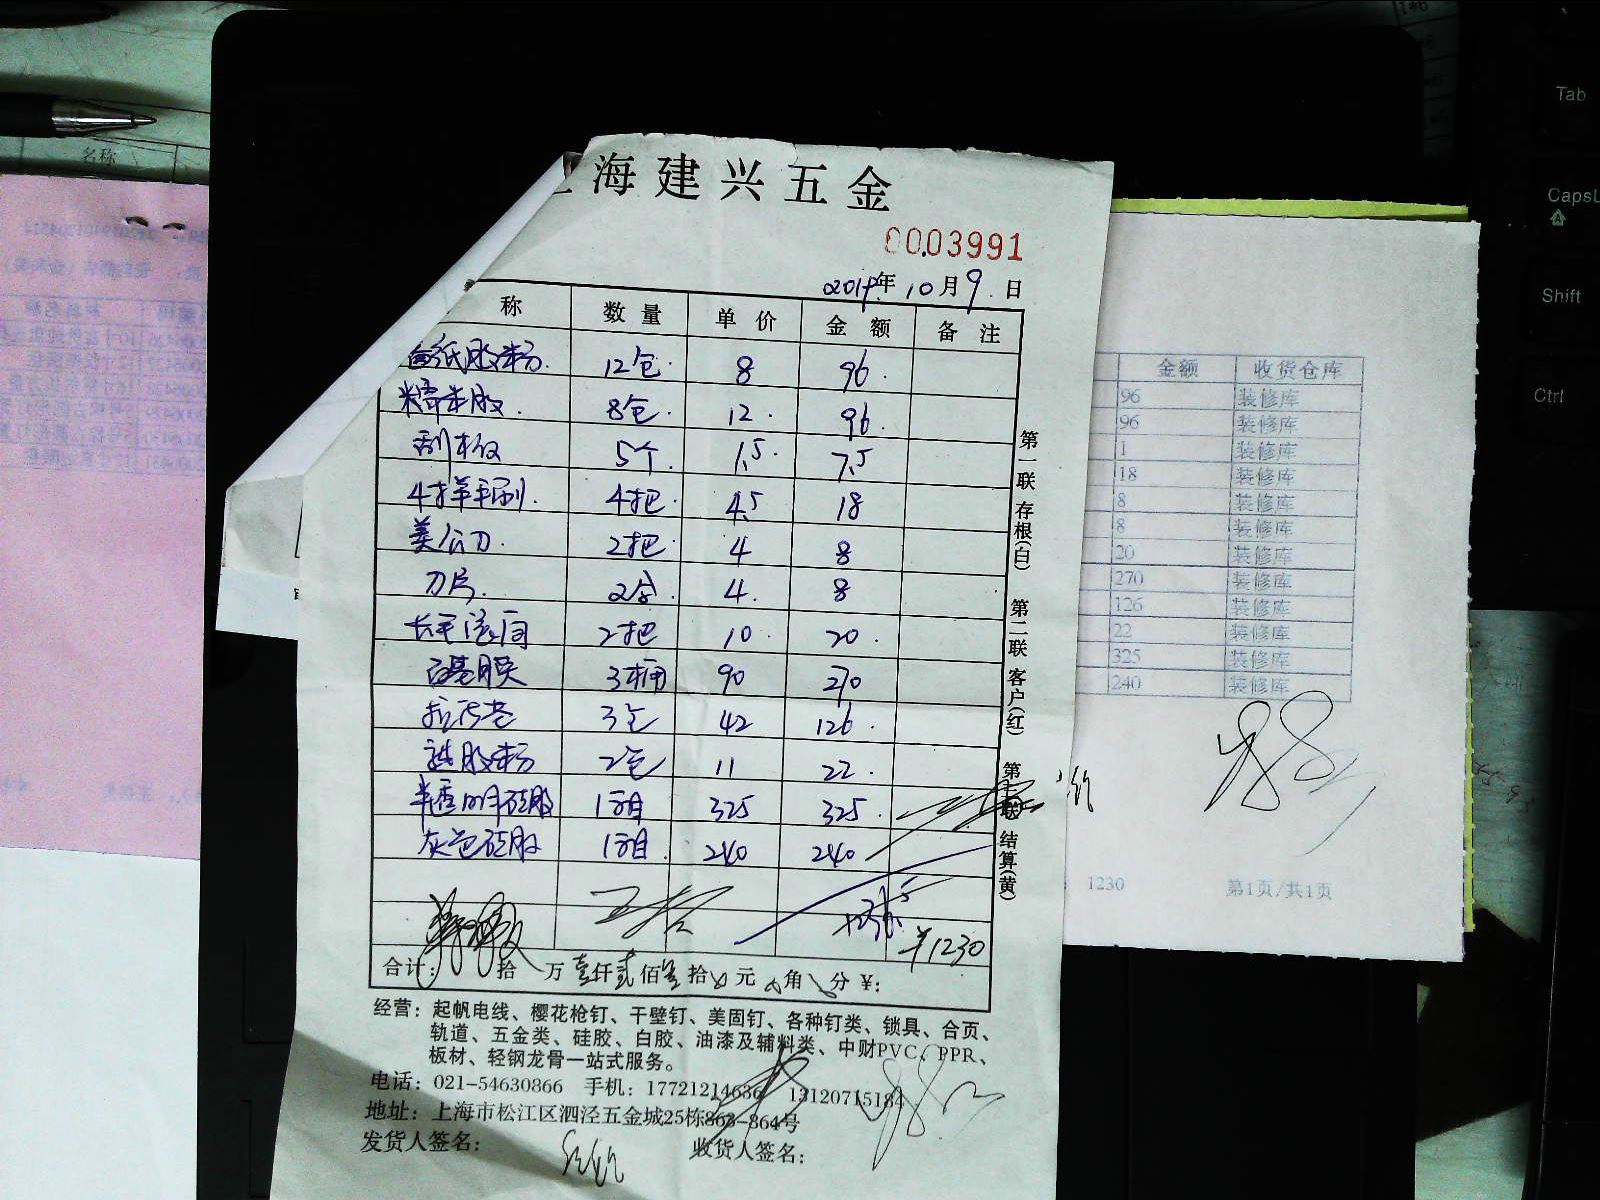 海建兴五金
0003991
2019年10月9日
称 数量 单价 金额 备注
墙纸胶粉 12包 8 96
糯米胶 8包 12 96
刮板 5个 1.5 7.5
4寸羊毛刷 4把 4.5 18
美工刀 2把 4 8
刀片 2盒 4 8
长毛滚筒 2把 10 20
基膜 3桶 90 270
3包 42 126
胶粉 2包 11 22
半透明硅胶 1箱 325 325
灰色硅胶 1箱 240 240
¥1230
合计: 拾 万 壹仟贰佰叁拾 元 角 分 ¥:
经营: 起帆电线、樱花枪钉、干壁钉、美固钉、各种钉类、锁具、合页、
轨道、五金类、硅胶、白胶、油漆及辅料类、中财PVC、PPR、
板材、轻钢龙骨一站式服务。
电话: 021-54630866 手机: 17721214636 13120715184
地址: 上海市松江区泗泾五金城25栋863-864号
发货人签名: 收货人签名:
第一联 存根(白) 第二联 客户(红) 第三联 结算(黄)
金额 收货仓库
96 装修库
96 装修库
1 装修库
18 装修库
8 装修库
8 装修库
20 装修库
270 装修库
126 装修库
22 装修库
325 装修库
240 装修库
1230 第1页/共1页
名称
Tab
CapsL
Shift
Ctrl